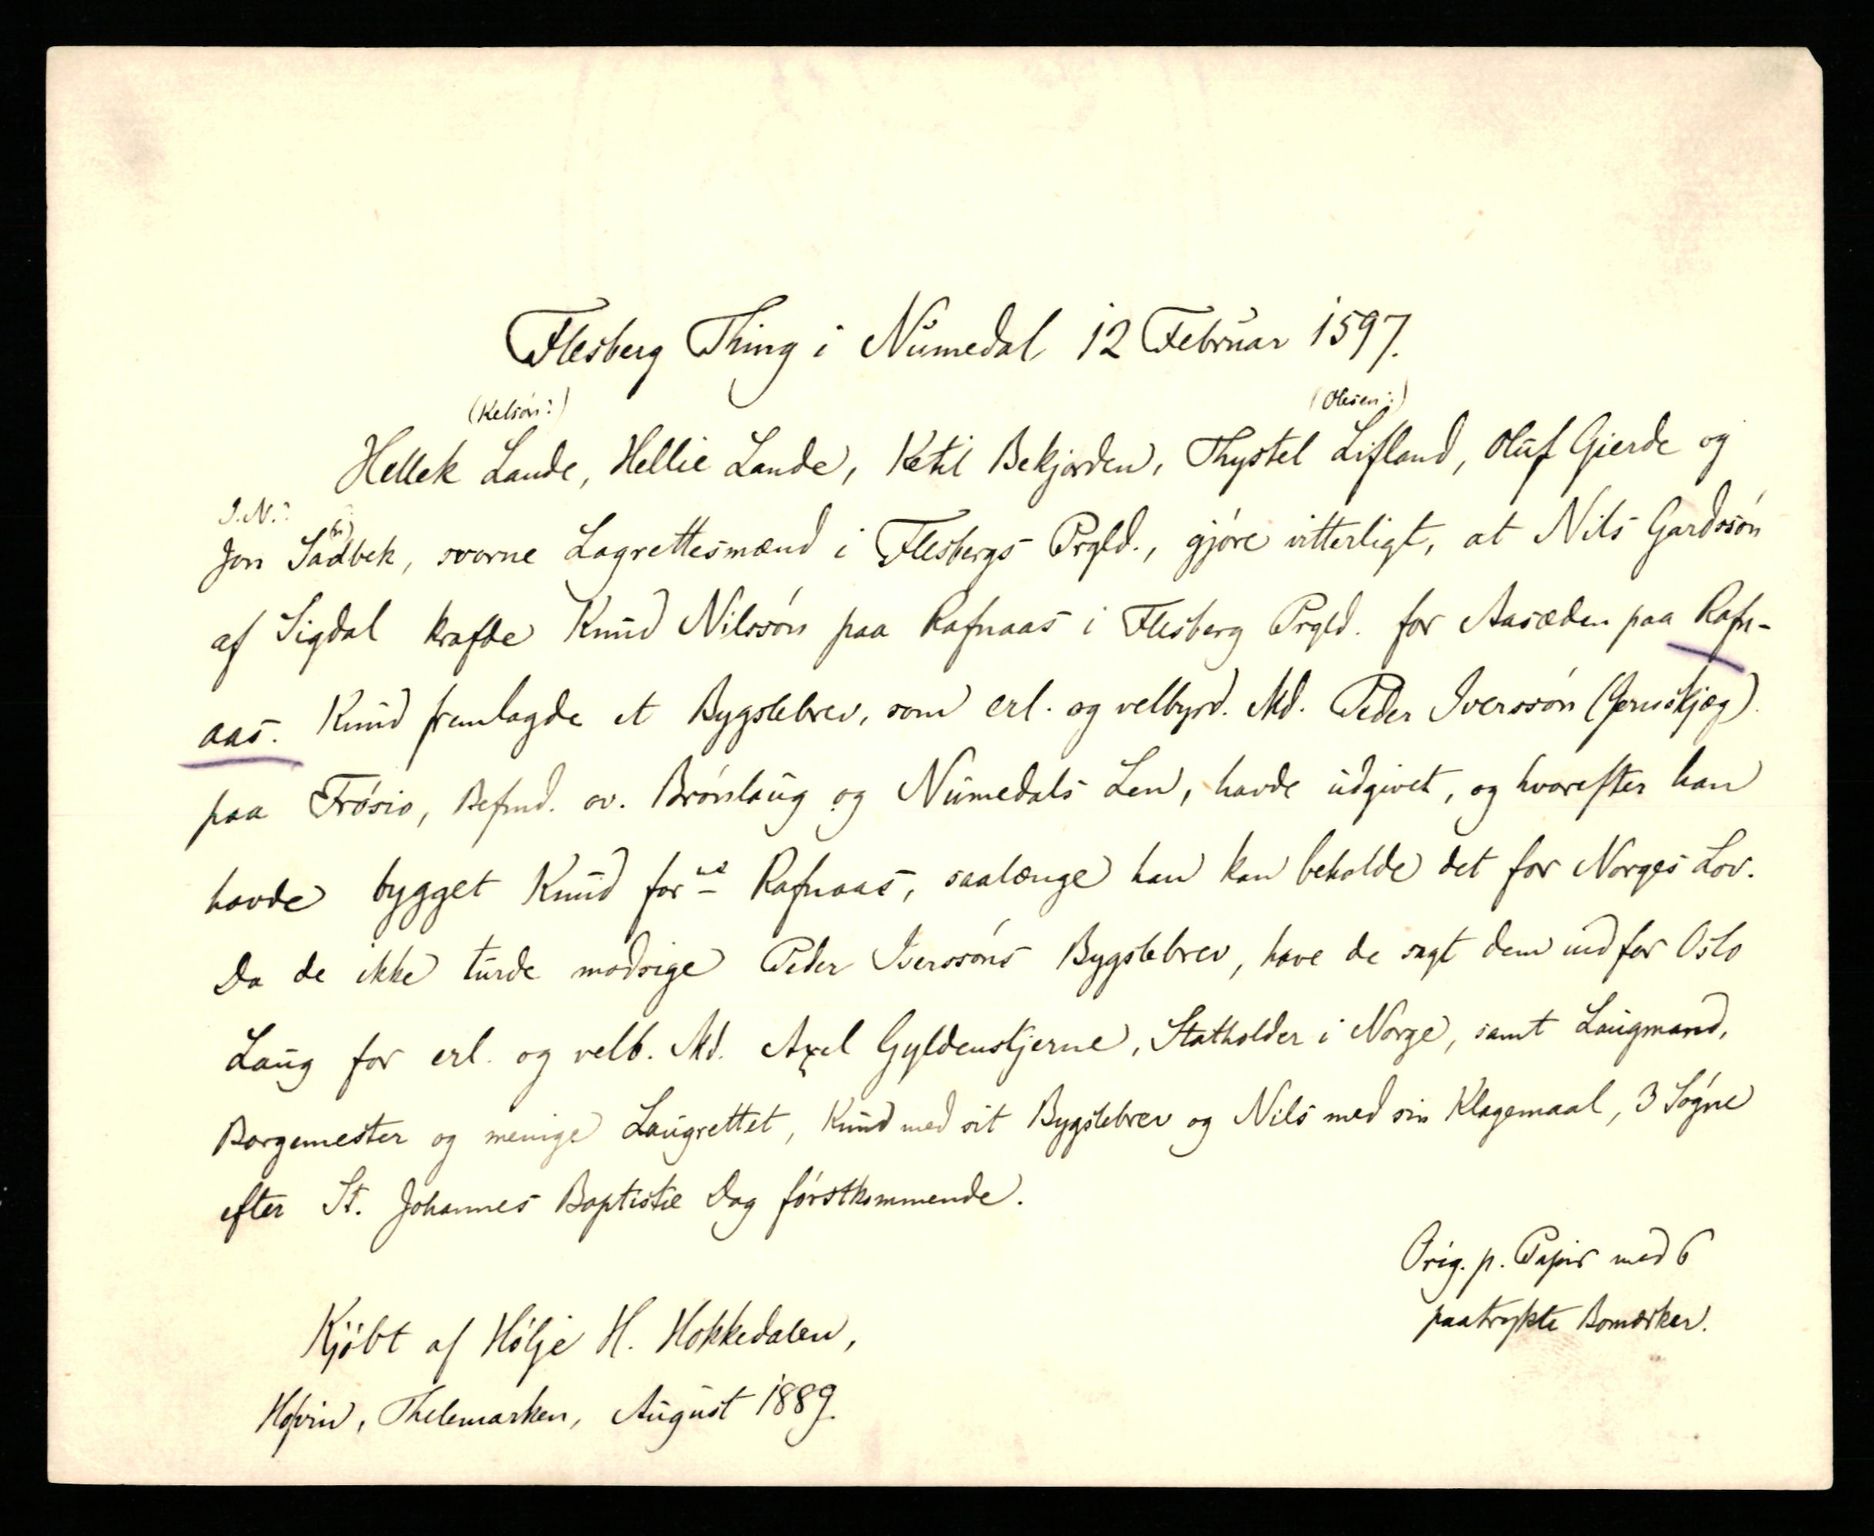 Flesberg Thing i Numedal 12 Februar 1597.
(Kelsön:) (Olesen:)
Hellek Lande, Hellie Lande, Ketil Bekjorden, Thystel Lifland, Oluf Gierde og
J.N.:
Jon Sadbek, svorne Lagrettesmænd i Flesbergs Prgld., gjöre vitterligt, at Nils Gardssön
af Sigdal krafde Knud Nilssön paa Rafnaas i Flesberg Prgld. for Aasæden paa Rafn-
aas. Knud fremlagde et Bygslebrev, som erl. og velbyrd. Md. Peder Iverssön (Jernskjæg)
paa Frösio, Befmd. ov. Brönlaug og Numedals Len, havde udgivet, og hvorefter han
havde bygget Knud for ne Rafnaas, saalænge han kan beholde det for Norges Lov.
Da de ikke turde modsige Peder Iverssöns Bygslebrev, have de sagt dem ind for Oslo
Laug for erl. og velb. Md. Axel Gyldenstjerne, Statholder i Norge, samt Laugmand,
Borgemester og menige Laugrettet, Knud med sit Bygslebrev og Nils med sin Klagemaal, 3 Sögne
efter St. Johannes Baptistæ Dag förstkommende.
Orig. p. Papir med 6
paatrykte Bomærker.
Kjöbt af Hölje H. Hokkedalen,
Hofvin, Thelemarken, August 1889.